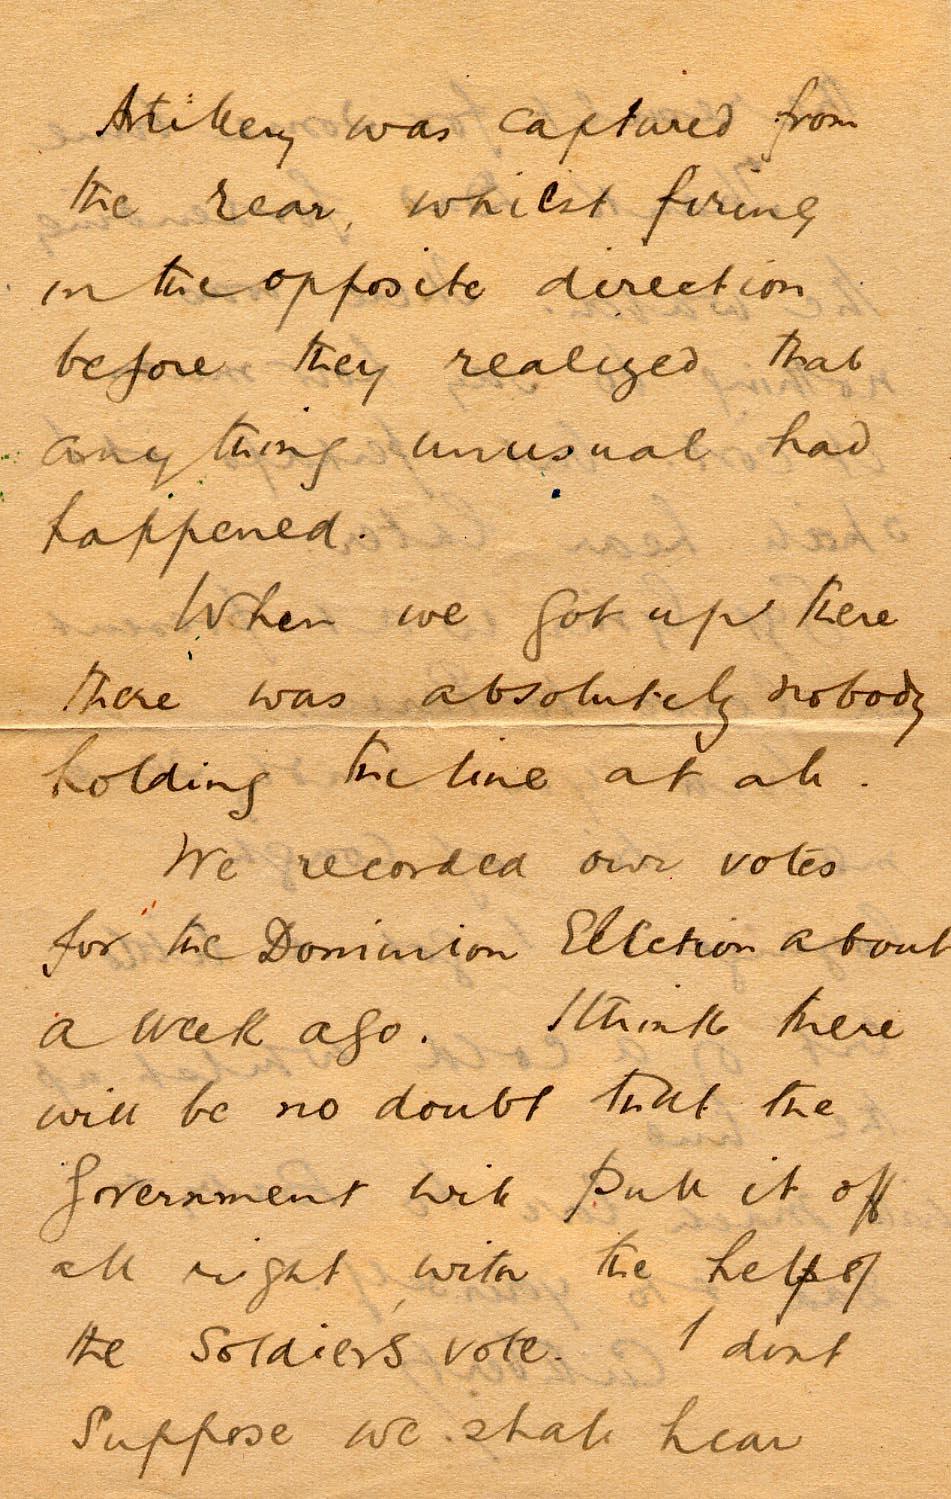 Artillery was captured from
the rear, whilst firing
in the opposite direction
before they realized that
anything unusual had
happened.
When we got up there
there was absolutely nobody
holding the line at all.
We recorded our votes
for the Dominion Election about
a week ago. I think there
will be no doubt that the
Government will pull it off
all right, with the help of
the Soldier's vote. I dont
suppose we shall hear